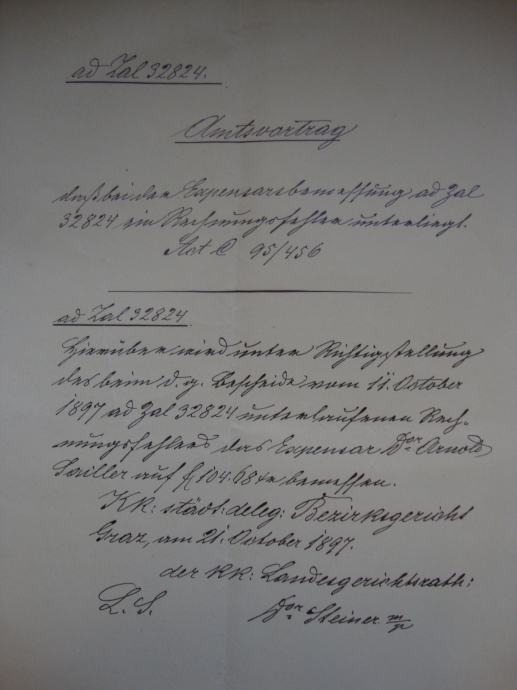 ad Zal 32824.
Amtsvortrag
daß bei der Expensarsbemessung ad Zal
32824 ein Rechnungsfehler unterliegt.
Act C 95/456
ad Zal 32824
Hierüber wird unter Richtigstellung
des beim d. g. Bescheide vom 11. October
1897 ad Zal 32824 unterlaufenen Rech-
nungsfehlers das Expensar Dor Arnold
Sailler auf f 104.68 bemessen.
KK: städt: deleg: Bezirksgericht
Graz, am 21. October 1897.
der KK: Landesgerichtsrath:
L. S. Dor Steiner m/p